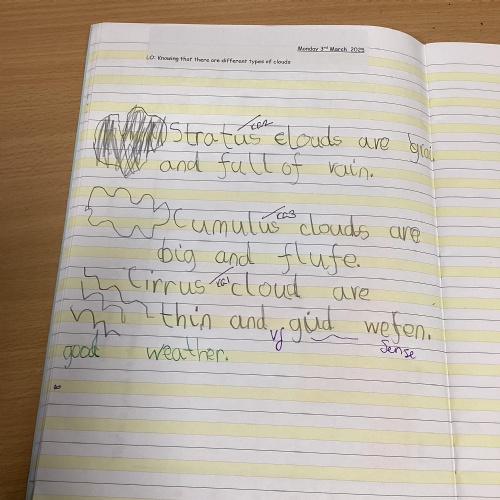 Monday 3rd March 2025
LO: Knowing that there are different types of clouds
Stratus clouds are
and full of rain.
Cumulus clouds are
big and flufe.
Cirrus cloud are
thin and gud wefen.
vf sense
good weather.